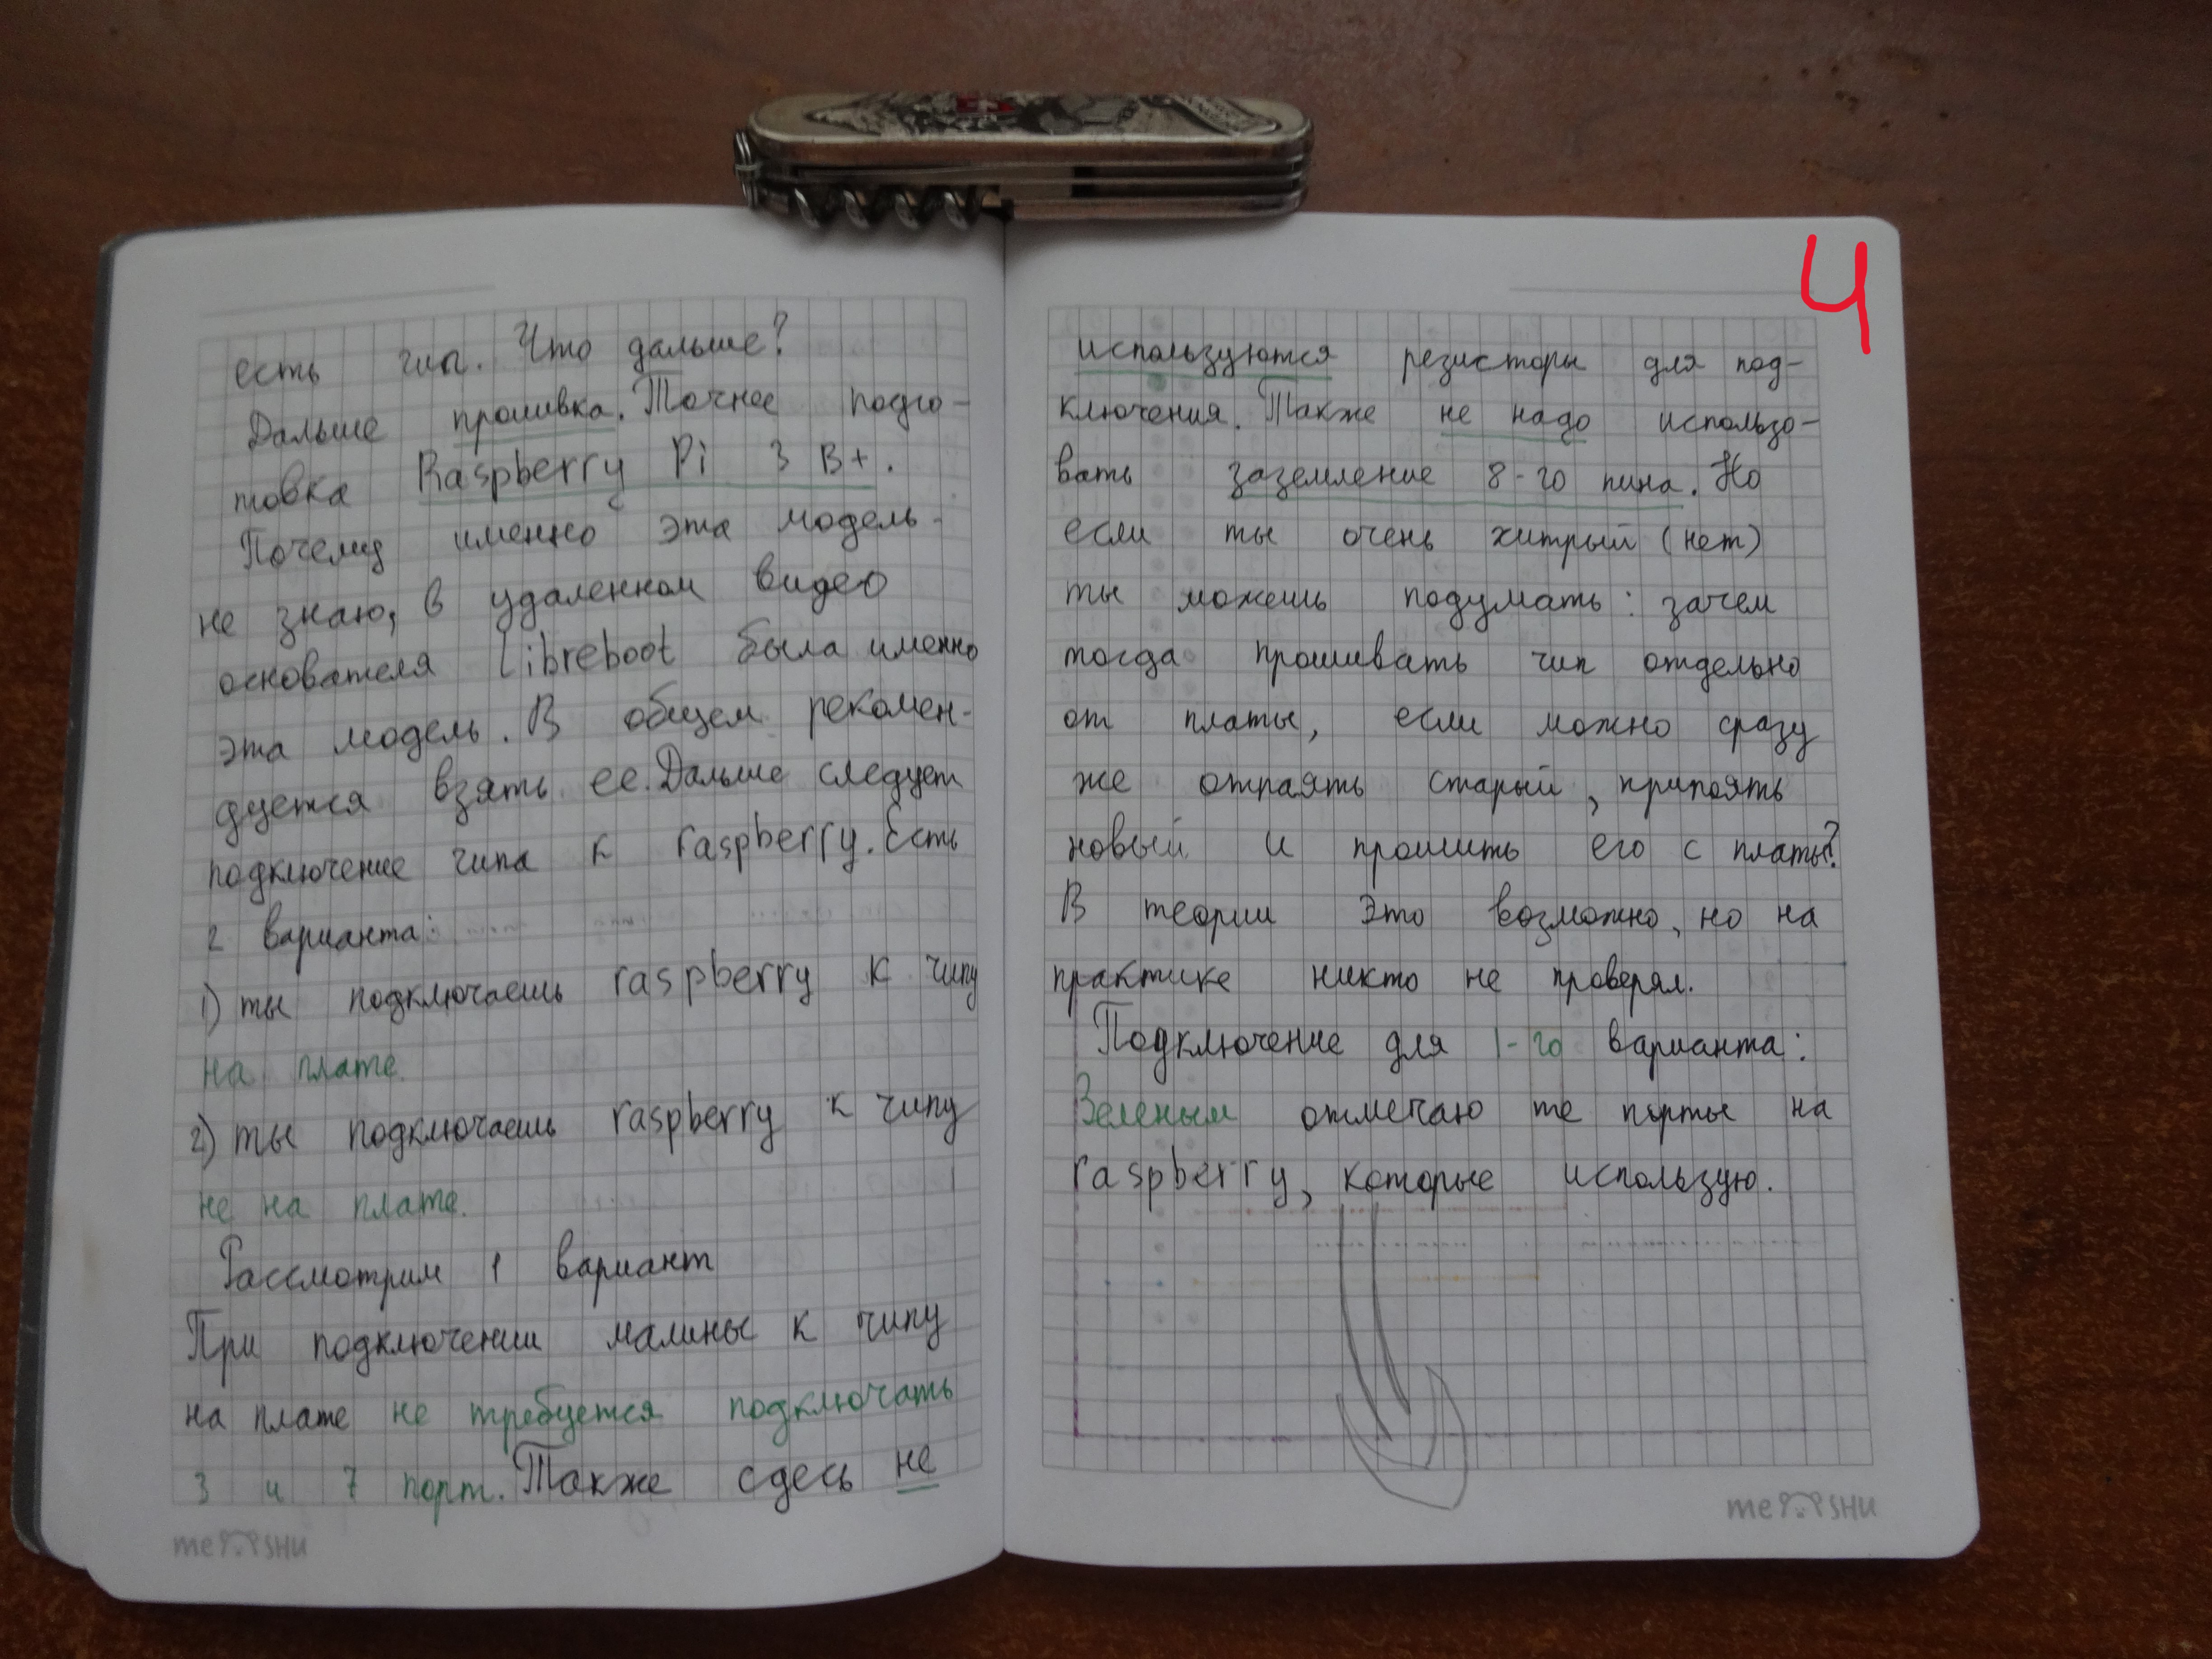 есть чип. Что дальше?
Дальше прошивка. Точнее подго-
товка Raspberry Pi 3 B+.
Почему именно эта модель -
не знаю, в удаленном видео
основателя Libreboot была именно
эта модель. В общем рекомен-
дуется взять ее. Дальше следует
подключение чипа к raspberry. Есть
2 варианта:
1) ты подключаешь raspberry к чипу
на плате.
2) ты подключаешь raspberry к чипу
не на плате.
Рассмотрим 1 вариант
При подключении малины к чипу
на плате не требуется подключать
3 и 7 порт. Также сдесь не
me SHU
4
используются резисторы для под-
ключения. Также не надо использо-
вать заземление 8-го пина. Но
если ты очень хитрый (нет)
ты можешь подумать: зачем
тогда прошивать чип отдельно
от платы, если можно сразу
же отпаять старый, припоять
новый и прошить его с платы?
В теории это возможно, но на
практике никто не проверял.
Подключение для 1-го варианта:
Зеленым отмечаю те порты на
raspberry, которые использую.
me SHU